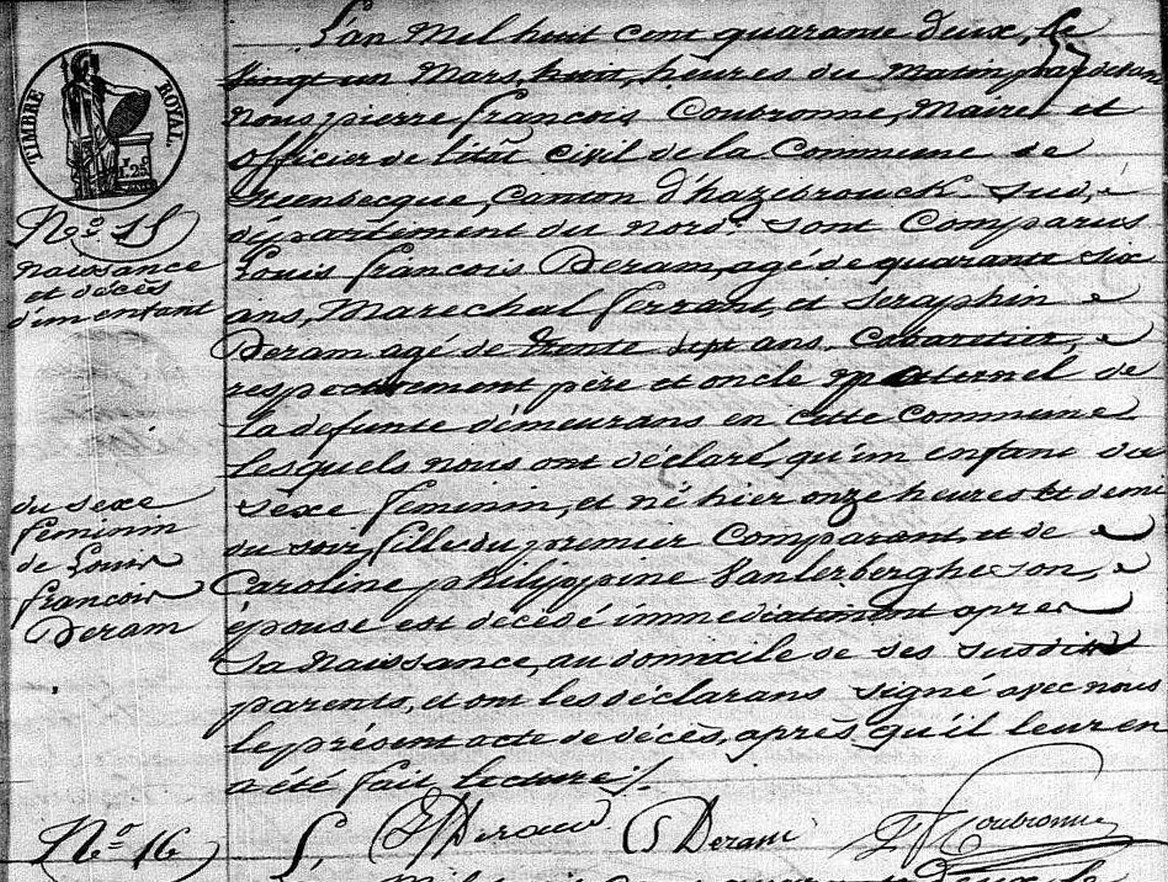 L'an Mil huit cent quarante deux, le
vingt un Mars, huit, heures du Matin, par devant
Nous pierre françois Coubronne, Maire et
officier de l'état civil de la Commune de
Steenbecque, Canton d'hazebrouck Sud,
département du nord. Sont Comparus
Louis françois Deram, agé de quarante six
ans, Marechal ferrant, et Seraphin
Deram agé de trente sept ans, Cabaretier,
respectivement père et oncle paternel de
la defunte démeurans en cette Commune
Lesquels nous ont déclaré, qu'un enfant du
séxe feminin, et né hier onze heures et demi
du soir, fille du premier Comparant, et de
Caroline philippine Vanlerberghe son,
épouse est décédé immediatement après
Sa Naissance, au domicile de ses susdits
parents, et ont les déclarans signé avec nous
le présent acte de décès, après qu'il leur en
a été fait lecture ./.
TIMBRE ROYAL
25
No. 15
naissance
et décès
d'un enfant
du sexe
feminin
de Louis
françois
Deram
LF Deram
S Deram
PF Coubronne
No 16
Mil huit cent quarante deux le